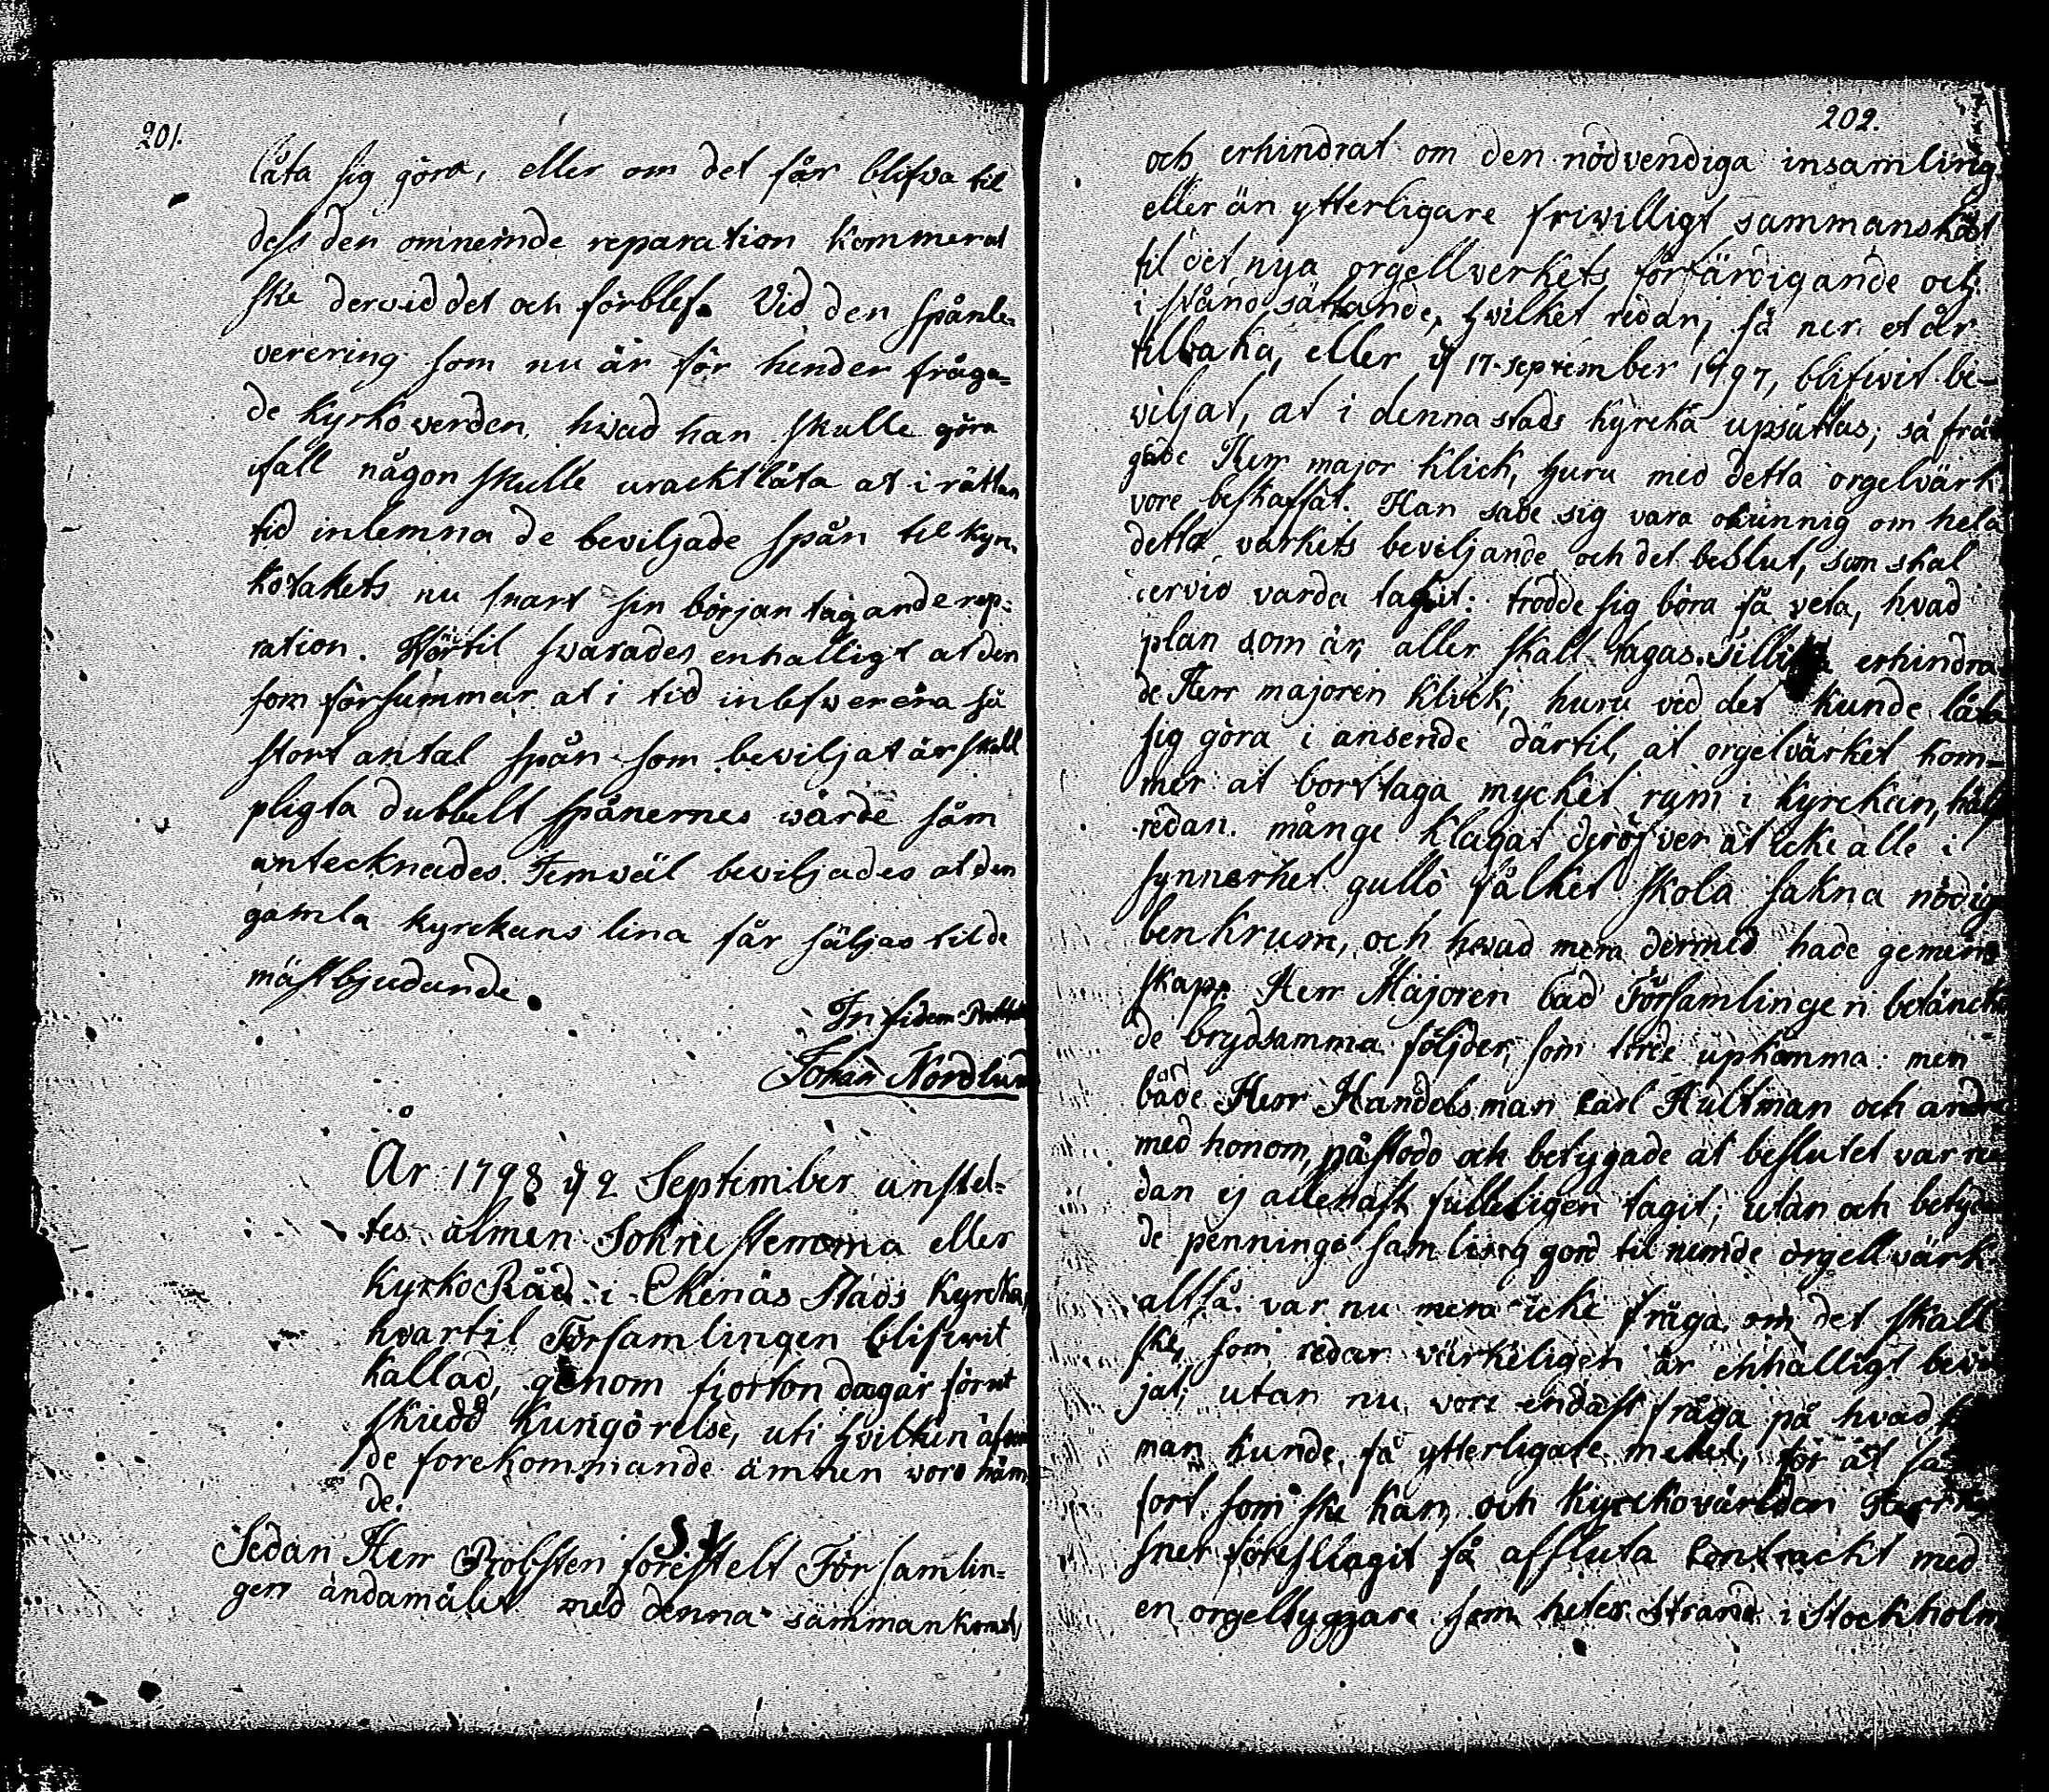 201.
låta sig göra, eller om det får blifva til
dess den omnemde reparation kommer at
ske derwid det och förblef. Vid den spånle-
verering som nu är för hender fråga=
de kyrkoverden, hvad han skulle göra
ifall någon skulle uracktlåta at i rättan
tid inlemna de beviljade spån til kyr-
kotakets nu snart sin början tagande rep-
ration. Härtil svarades enhalligt at den
som försummar at i tid inlefwerera så
stort antal spån som beviljat är skall
pligta dubbelt spånernes wärde såm
antecknades. Jemwäl beviljades at den
gamla kyrckans lina får säljas til de
mästbjudande.
In fidem
Johan Nordlund
År 1798 d 2 September anstel=
tes almen Sokne stemma eller
kyrkoRåd i Ekenäs Stads kyrcka,
hvartil Församlingen blifwit
kallad, genom fjorton dagar förut
skiedd kungörelse, uti hvilken äfven
de forekommande ämnen voro näm
de.
S 1
Sedan Herr Probsten forestelt Församlin=
gen ändamålet med denna sammankomst,
202.
och erhindrat om den nödvendiga insamling
eller än ytterligare friwilligt sammanskott
til det nya orgellverkets förfärdigande och
i stånd sättande, hvilket redan, så ner et år
tilbaka, eller d 17 september 1797, blifwit be-
viljat, at i denna stads kyrcka upsättas; så frå
gade Herr major Klick, huru med detta orgelvärk
vore beskaffat. Han sade sig vara okunnig om hela
detta varkets beviljande och det beslut, som skal
dervid varda tagit: trodde sig böra få veta, hvad
plan som är, aller skall tagas. Tillika erhindra
de Herr majoren Klick, huru ved det kunde låta
sig göra i ansende därtil, at orgelvärket kom-
mer at borttaga mycket rum i kyrckan, hälst
redan månge klagat deröfver at icke alle i
synnerhet gullo fålket skola sakna nödig
benkrum, och hwad mera dermed hade gemens
skap. Herr Majoren bad Församlingen betänck
de brydsamma följder, som torde upkomma: men
både Herr Handelsman Carl Hultman och andre
med honom, påstodo och betygade at beslutet var re
dan ej allenast fulleligen tagit, utan och betyd
de penninge samling gord til nemde orgellvärk
altså var nu mera icke fråga om det skall
ske, som redan värkeligen är enhälligt bevil
jat, utan nu vore endast fråga på hvad
man kunde få ytterligare medel, för at så
fort som ske kan, och kyrckovärden Herr
sner föreslagit få afsluta Contrackt med
en orgelbyggare som heter Strand i Stockholm